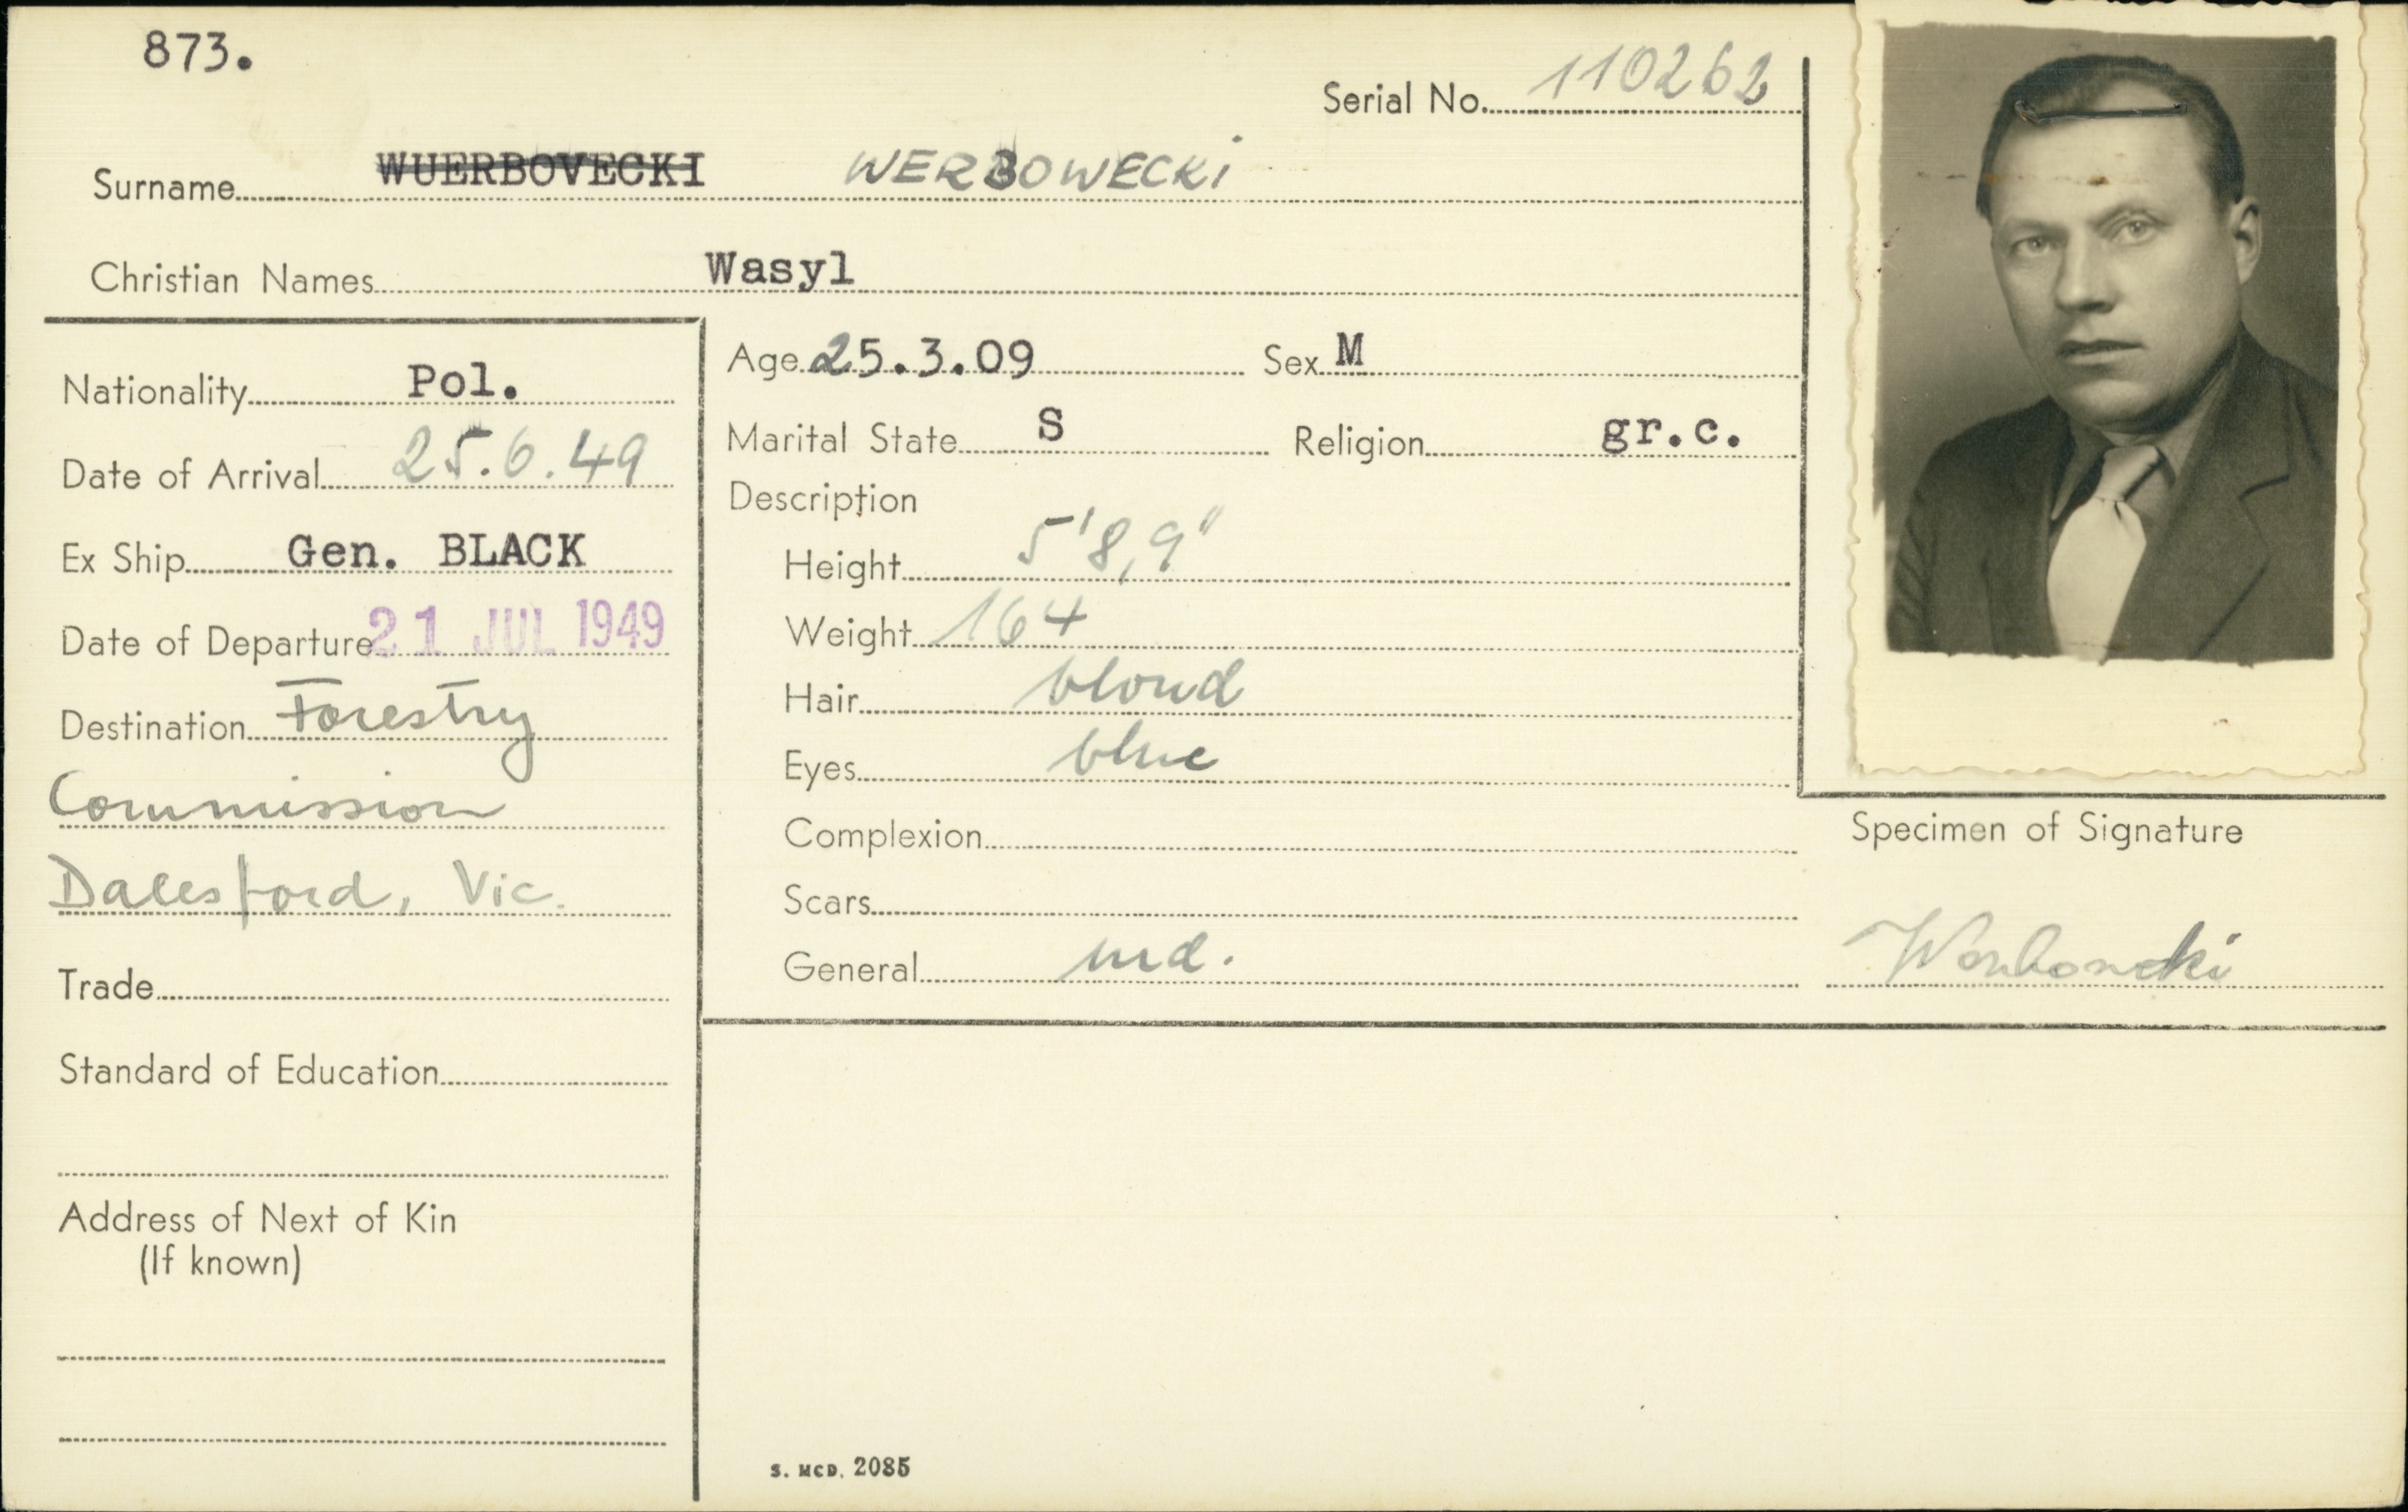 873.
Serial No. 110262
Surname WUERBOVECKI WERBOWECKi
Christian Names Wasyl
Nationality Pol.
Date of Arrival 25.6.49
Ex Ship Gen. BLACK
Date of Departure 21 JUL 1949
Destination Forestry
Commission
Dalesford, Vic.
Trade
Standard of Education
Address of Next of Kin
(If known)
Age 25.3.09 Sex M
Marital State S Religion gr.c.
Description
Height 5'8,9"
Weight 164
Hair blond
Eyes blue
Complexion
Scars
General md.
Specimen of Signature
S. MCD. 2085